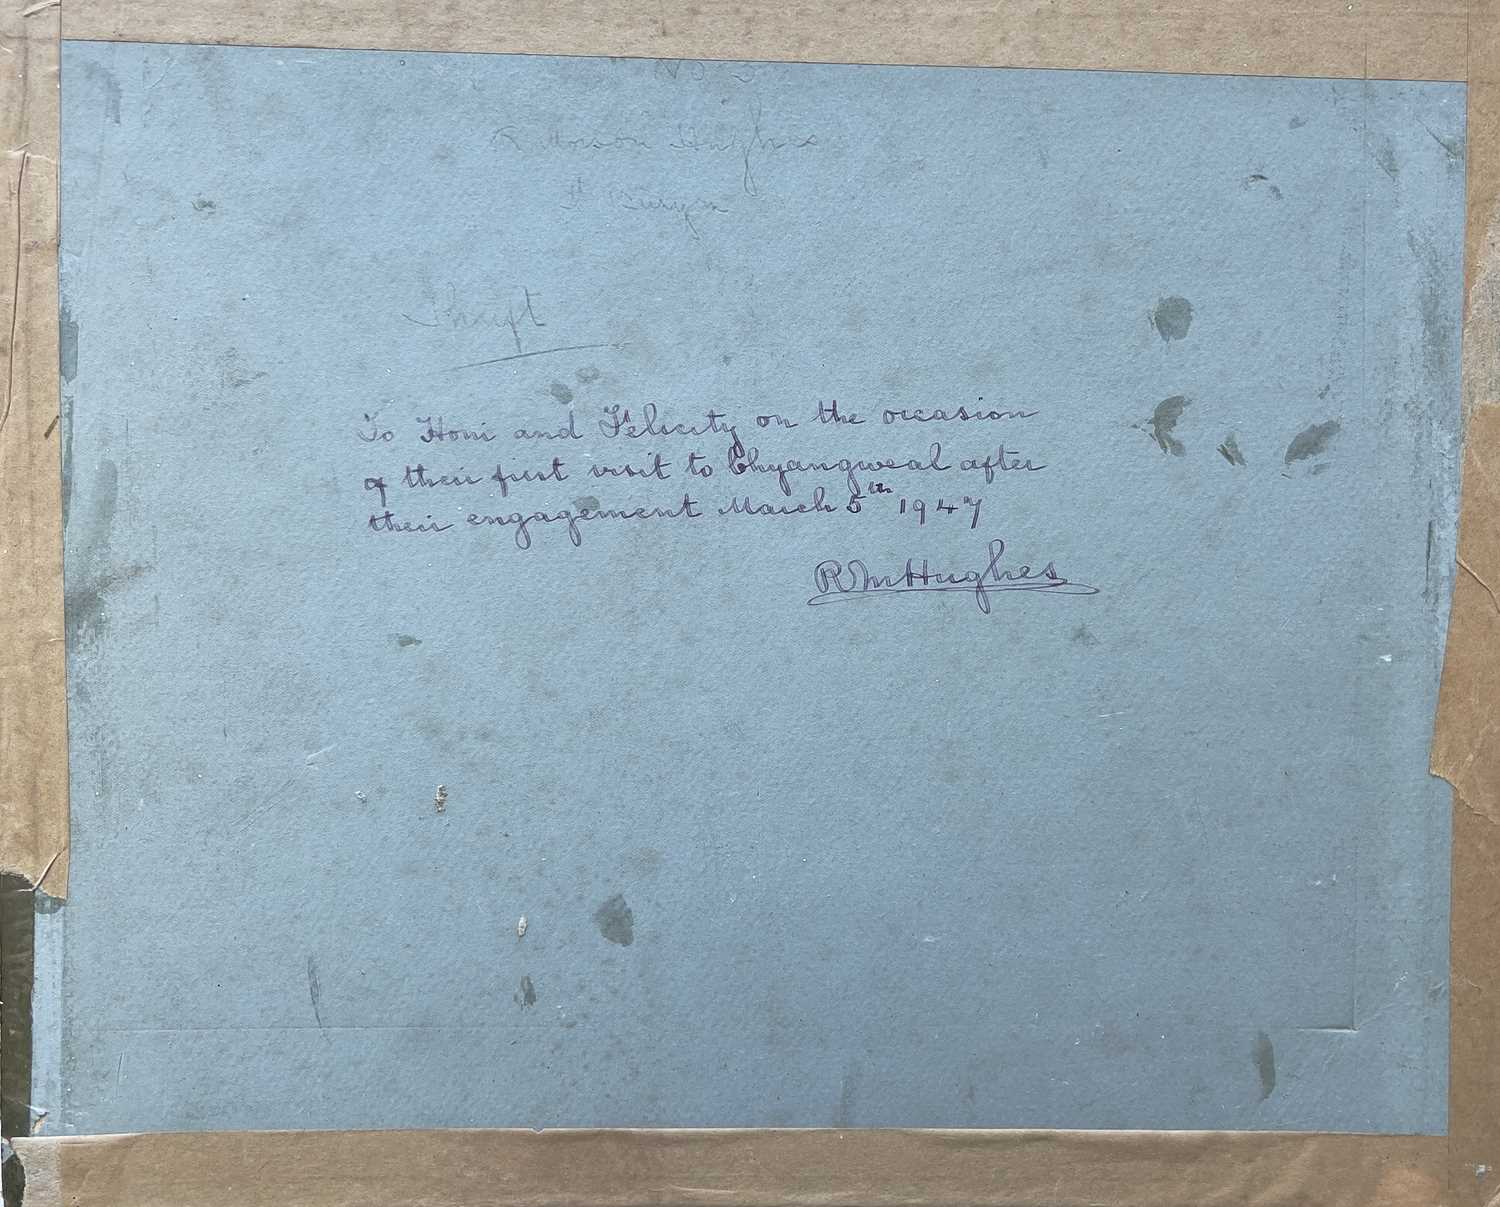 No 3
R Morson Hughes
St Buryan
To Honi and Felicity on the occasion
of their first visit to Chyangweal after
their engagement March 5th 1947
R M Hughes